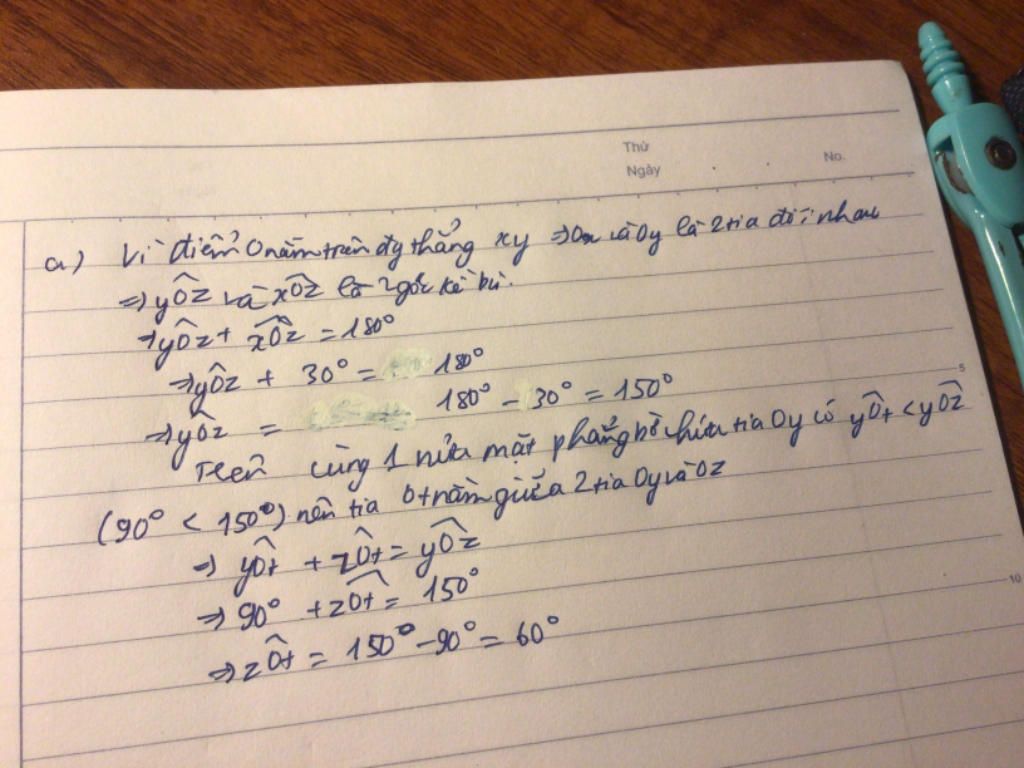 Thứ
Ngày . . No.
a) Vì điểm O nằm trên đg thẳng xy ⇒ Ox và Oy là 2 tia đối nhau
⇒ yÔz và xÔz là 2 góc kề bù.
⇒ yÔz + xÔz = 180°
⇒ yÔz + 30° = 180°
⇒ yÔz = 180° - 30° = 150°
Trên cùng 1 nửa mặt phẳng bờ chứa tia Oy có yÔt < yÔz
(90° < 150°) nên tia Ot nằm giữa 2 tia Oy và Oz
⇒ yÔt + zÔt = yÔz
⇒ 90° + zÔt = 150°
⇒ zÔt = 150° - 90° = 60°
5
10